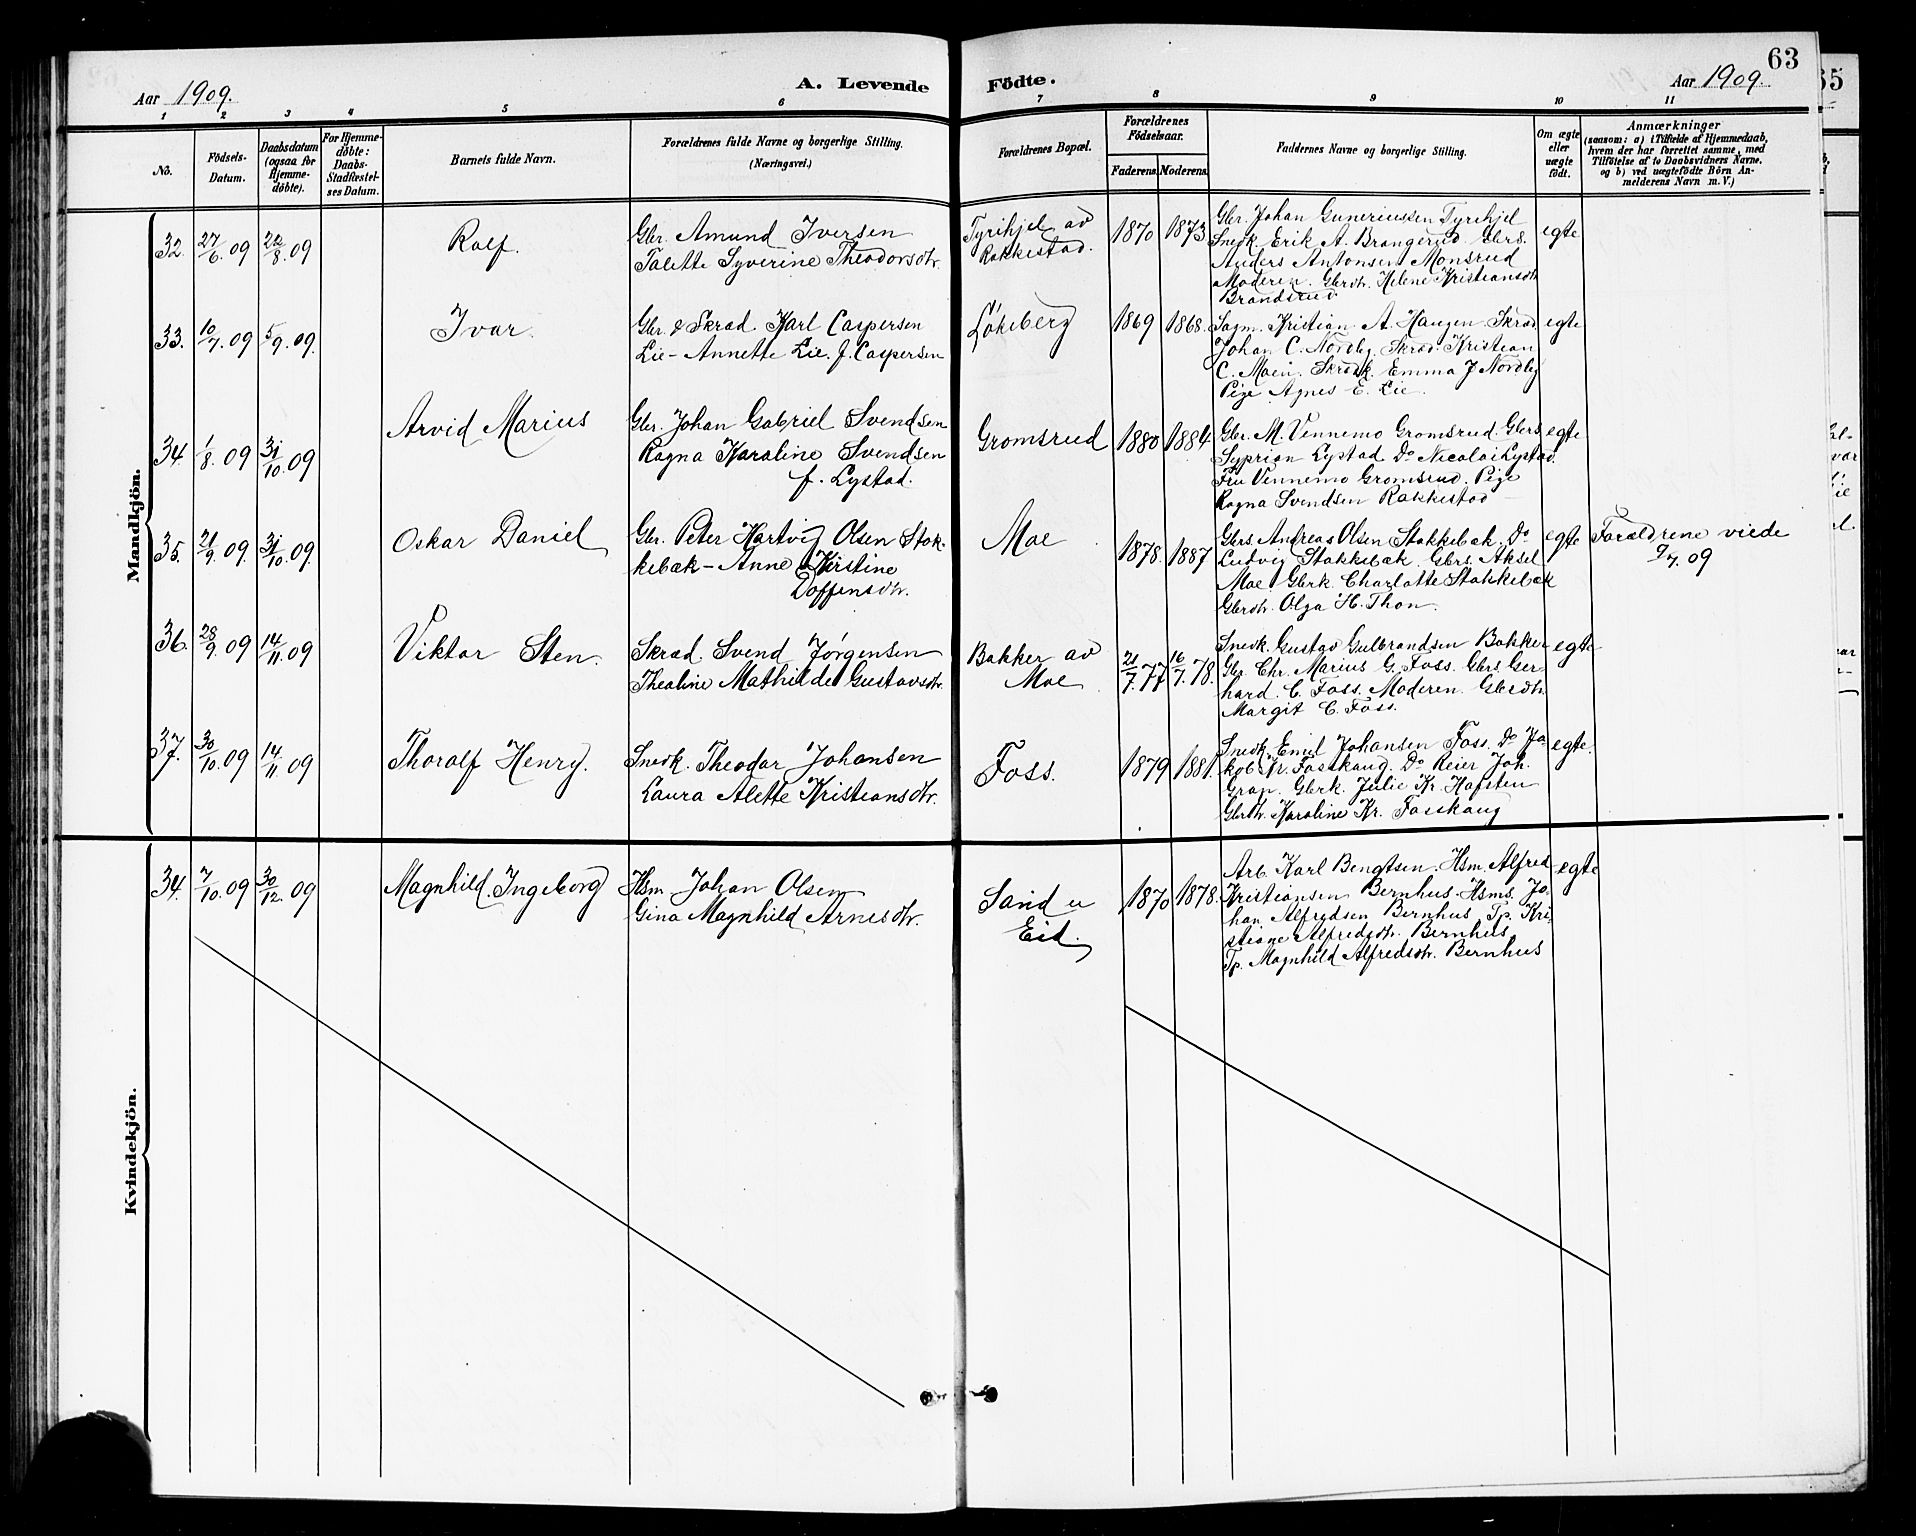 63
Aar 1909.
A. Levende Födte.
Aar 1909.
1 2 3 4 5 6 7 8 9 10 11
No.
Födsels-
Datum.
Daabsdatum
(ogsaa for
Hjemme-
döbte).
For Hjemme-
döbte:
Daabs-
Stadfæstel-
ses Datum.
Barnets fulde Navn.
Forældrenes fulde Navne og borgerlige Stilling.
(Næringsvei.)
Forældrenes Bopæl.
Forældrenes
Födselsaar.
Faderens. Moderens.
Faddernes Navne og borgerlige Stilling.
Om ægte
eller
uægte
födt.
Anmærkninger
(saasom: a) i Tilfælde af Hjemmedaab,
hvem der har forrettet samme, med
Tilföielse af to Daabsvidners Navne,
og b) ved uægtefödte Börn An-
melderens Navn m. V.)
Mandkjön.
32. 27/6 09 22/8 09
Rolf.
Gbr. Amund Iversen
Talette Syverine Theodorsdtr.
Tyrihjel av
Rakkestad.
1870 1873
Gbr. Johan Guneriussen Tyrihjel
Snedk. Erik A. Brangerud. Gbrs.
Anders Antonsen Monsrud
Moderen. Gbrdtr. Helene Kristiansdtr
Brandsrud
egte
33. 10/7 09 5/9 09.
Ivar.
Gbr. & Skræd. Karl Caspersen
Lie - Annette Lie. f. Caspersen
Løkeberg
1869 1868.
Sagm. Kristian A. Haugen Skræd
Johan C. Nordby. Skræd. Kristian
C. Moen. Skrædk. Emma J Nordby
Pige Agnes E. Lie.
egte
34. 1/8 09 31/10 09
Arvid Marius
Gbr. Johan Gabriel Svendsen
Ragna Karoline Svendsen
f. Lystad.
Gromsrud
1880 1884
Gbr. M. Vennemo Gromsrud. Gbrs
Syprian Lystad Do Nicolai Lystad.
Fru Vennemo Gromsrud. Pige
Ragna Svendsen Rakkestad
egte
35. 21/9 09. 31/10 09.
Oskar Daniel
Gbr. Peter Hartvig Olsen Stok-
kebæk - Anne Kirstine
Doffensdtr.
Moe
1878. 1887
Gbrs. Andreas Olsen Stokkebæk. Do
Ludvig Stokkebæk Gbrs. Aksel
Moe Gbrk. Charlotte Stokkebæk
Gbrdtr. Olga H. Thon.
egte
Forældrene viede
9/7. 09
36. 28/9 09 14/11 09
Viktor Sten.
Skræd. Svend Jørgensen
Thealine Mathilde Gustavsdtr.
Bakker av
Moe
21/7. 77 16/7. 78.
Snedk. Gustav Gulbrandsen Bakker
Gbr. Chr. Marius G. Foss. Gbrs Ger-
hard. C. Foss. Moderen. Gbrdtr.
Margit C. Foss.
egte
37. 30/10 09 14/11 09
Thoralf Henry.
Snedk. Theodor Johansen
Laura Alette Kristiansdtr.
Foss.
1879 1881.
Snedk. Emil Johansen Foss. Do Ja-
kob Kr. Fosskaug. Do Reier Joh.
Grav. Gbrk. Julie Kr. Hafsten
Gbrdtr. Karoline Kr. Fosskaug
egte.
Kvindekjön.
34. 7/10 09 30/12 09
Magnhild Ingeborg
Hsm. Johan Olsen
Gina Magnhild Arnesdtr.
Sand u
Eid.
1870 1878.
Arb. Karl Bengtsen. Hsm. Alfred
Kristiansen Bernhus. Hsms. Jo-
han Alfredsen Bernhus Tp. Kri-
stiane Alfredsdtr. Bernhus
Tp. Magnhild Alfredsdtr. Bernhus
egte